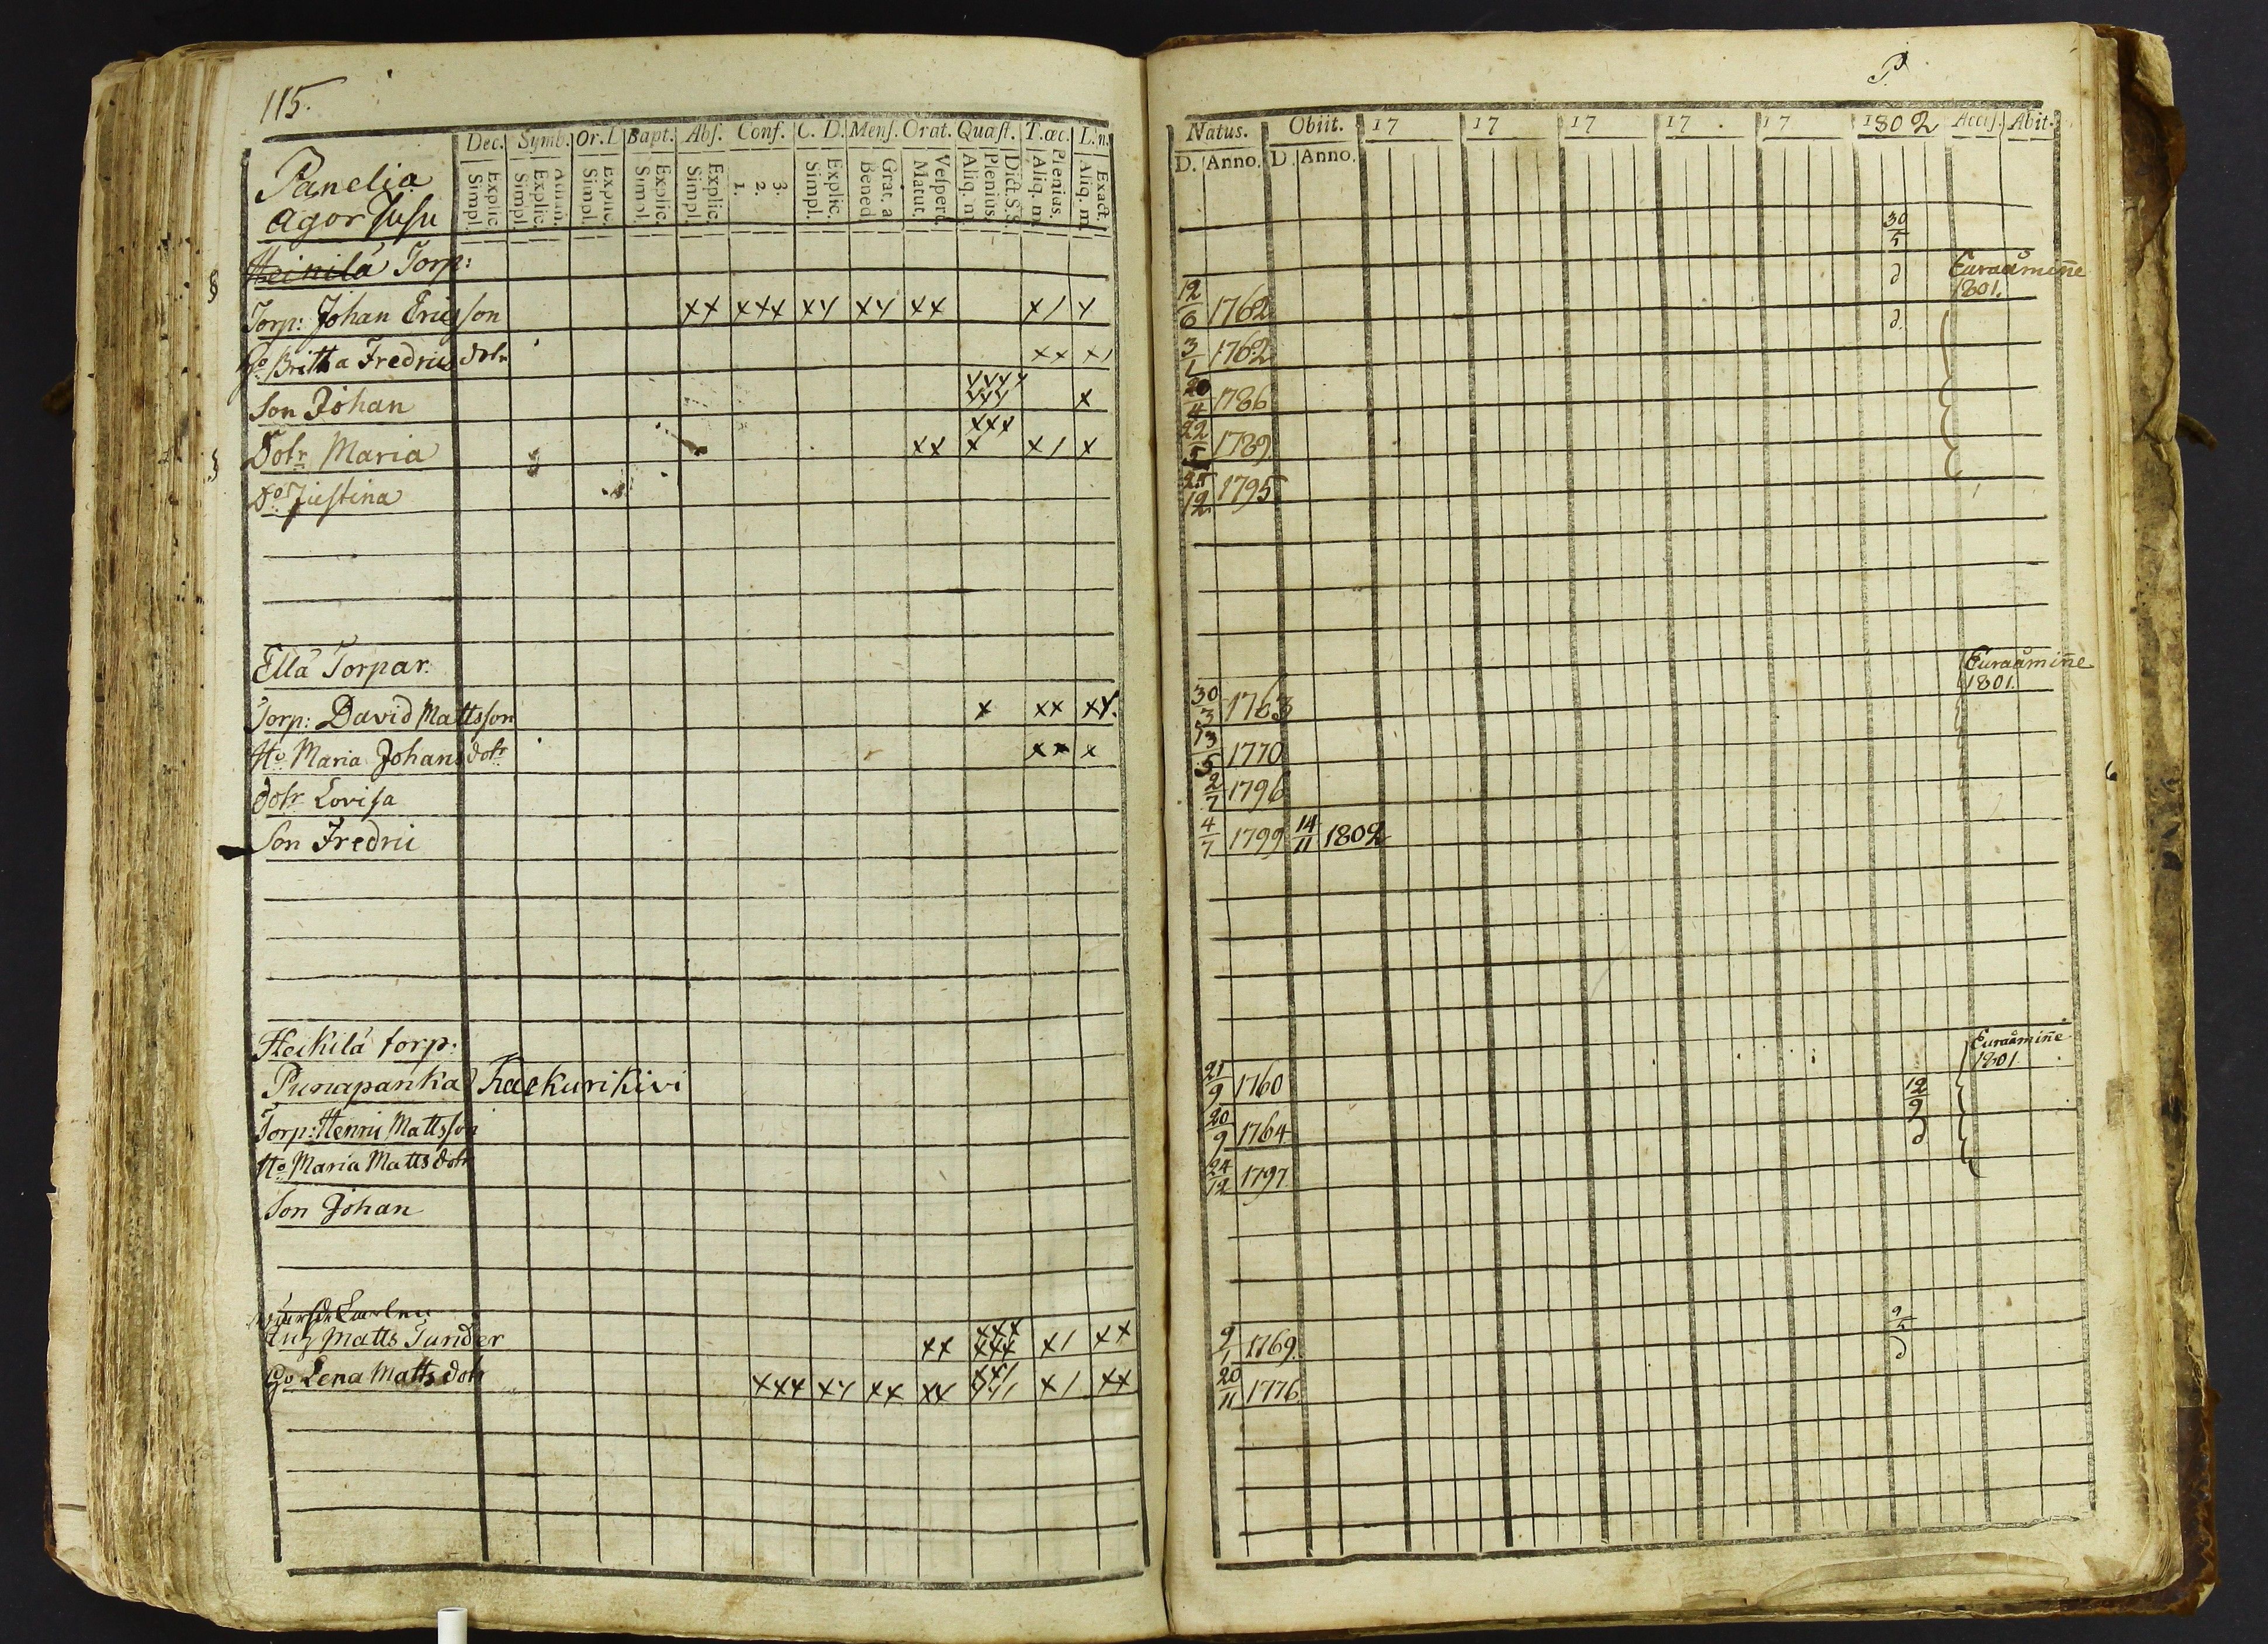 115.
Dec. Symb. Or. D Bapt. Abſ. Conf. C. D. Menſ. Orat. Quæſt. T. œc. L. n.
Explic. Simpl. Athan. Explic. Simpl. Explic. Simpl. Explic. Simpl. Explic. Simpl. 3. 2. 1. Explic. Simpl. Grat. a Bened. Veſpert. Matut. Dict. S. S. Plenius. Aliq. m Plenias. Aliq. m Exact. Aliq. m
Panelia
agor Juſu
Heinilä Torp:
Torp: Johan Ericsſon xx xxx xy xy xx x/ y
Ho Britha Fredricsdotr xx x/
yyyy
Son Johan yyy x
xxx
Dotr Maria xx x x/ x
Do Justina
Ellä Torpar.
Torp: David Mattsſon x xx xy.
Ho Maria Johansdotr xx x
dotr Loviſa
Son Fredric
Heikilä torp:
Punapanka Kaekurikivi
Torp: Henric Mattsſon
Ho Maria Mattsdotr
Son Johan
xxx
Matts Tunder xx xxx x/ xx
Lena Mattsdotr xxx xy xx xx x/ xx
P.
Natus. Obiit. 17 17 17 17 17 1802 Acceſ. Abit.
D. Anno. D. Anno.
30/5
12/6 1762 d Euraåminne 1801.
3/1 1762 d.
20/4 1786
22/5 1789
25/12 1795
Euraåminne
30/3 1763 1801.
13/5 1770
2/7 1796
4/7 1799 14/11 1802
Euraåminne
21/9 1760 1801.
20/9 1764 12/9
24/12 1797 d
9/1 1769. 9/5
20/11 1776. d